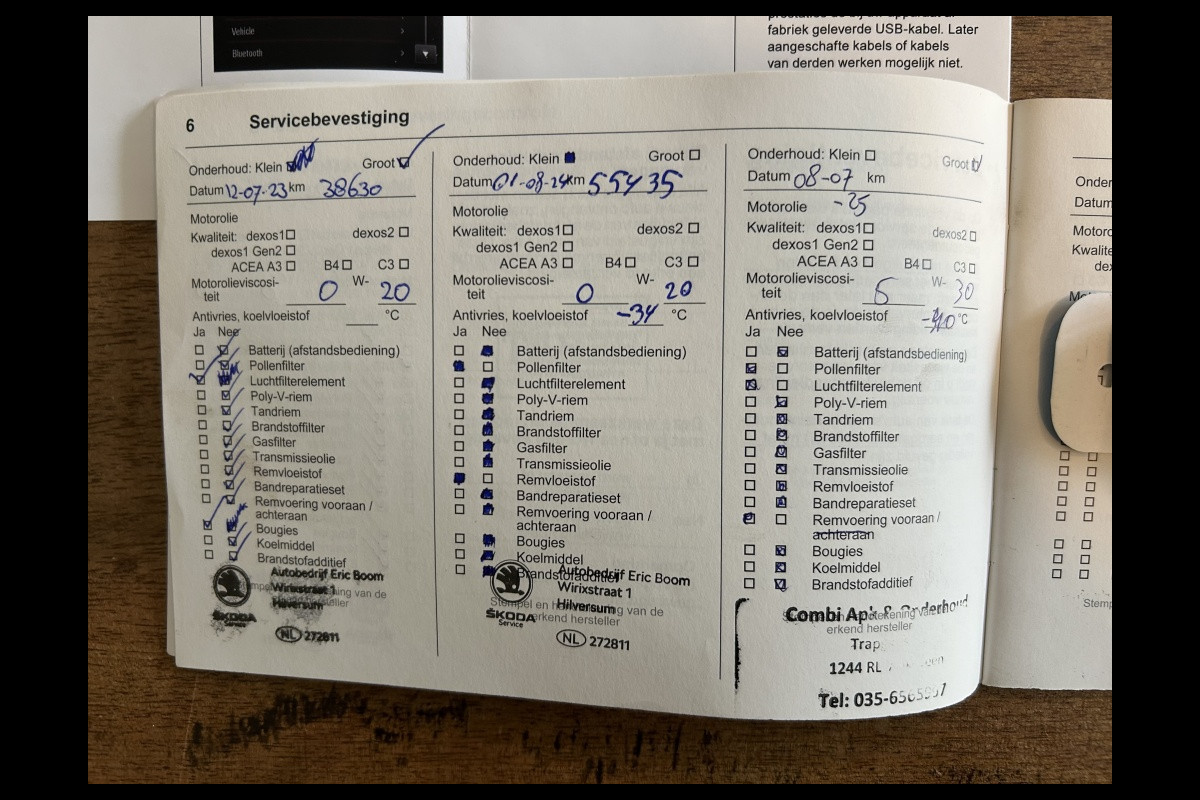 Vehicle
Bluetooth
fabriek geleverde USB-kabel. Later
aangeschafte kabels of kabels
van derden werken mogelijk niet.
6 Servicebevestiging
Onderhoud: Klein Groot
Datum 12-07-23 km 38630
Motorolie
Kwaliteit: dexos1 dexos2
dexos1 Gen2
ACEA A3 B4 C3
Motorolieviscosi-
teit 0 W- 20
Antivries, koelvloeistof °C
Ja Nee
Batterij (afstandsbediening)
Pollenfilter
Luchtfilterelement
Poly-V-riem
Tandriem
Brandstoffilter
Gasfilter
Transmissieolie
Remvloeistof
Bandreparatieset
Remvoering vooraan /
achteraan
Bougies
Koelmiddel
Brandstofadditief
Autobedrijf Eric Boom
Wirixstraat 1
Hilversum
ŠKODA
NL 272811
Onderhoud: Klein Groot
Datum 01-08-24 km 55435
Motorolie
Kwaliteit: dexos1 dexos2
dexos1 Gen2
ACEA A3 B4 C3
Motorolieviscosi-
teit 0 W- 20
Antivries, koelvloeistof -34 °C
Ja Nee
Batterij (afstandsbediening)
Pollenfilter
Luchtfilterelement
Poly-V-riem
Tandriem
Brandstoffilter
Gasfilter
Transmissieolie
Remvloeistof
Bandreparatieset
Remvoering vooraan /
achteraan
Bougies
Koelmiddel
Brandstofadditief
Autobedrijf Eric Boom
Wirixstraat 1
Hilversum
Stempel en van de
erkend hersteller
ŠKODA
Service
NL 272811
Onderhoud: Klein Groot
Datum 08-07 km
-25
Motorolie
Kwaliteit: dexos1 dexos2
dexos1 Gen2
ACEA A3 B4 C3
Motorolieviscosi-
teit 5 W- 30
Antivries, koelvloeistof °C
Ja Nee
Batterij (afstandsbediening)
Pollenfilter
Luchtfilterelement
Poly-V-riem
Tandriem
Brandstoffilter
Gasfilter
Transmissieolie
Remvloeistof
Bandreparatieset
Remvoering vooraan /
achteraan
Bougies
Koelmiddel
Brandstofadditief
Combi Onderhoud
erkend hersteller
Trap
1244 RL
Tel: 035-
Onder
Datum
Kwalite
Stemp